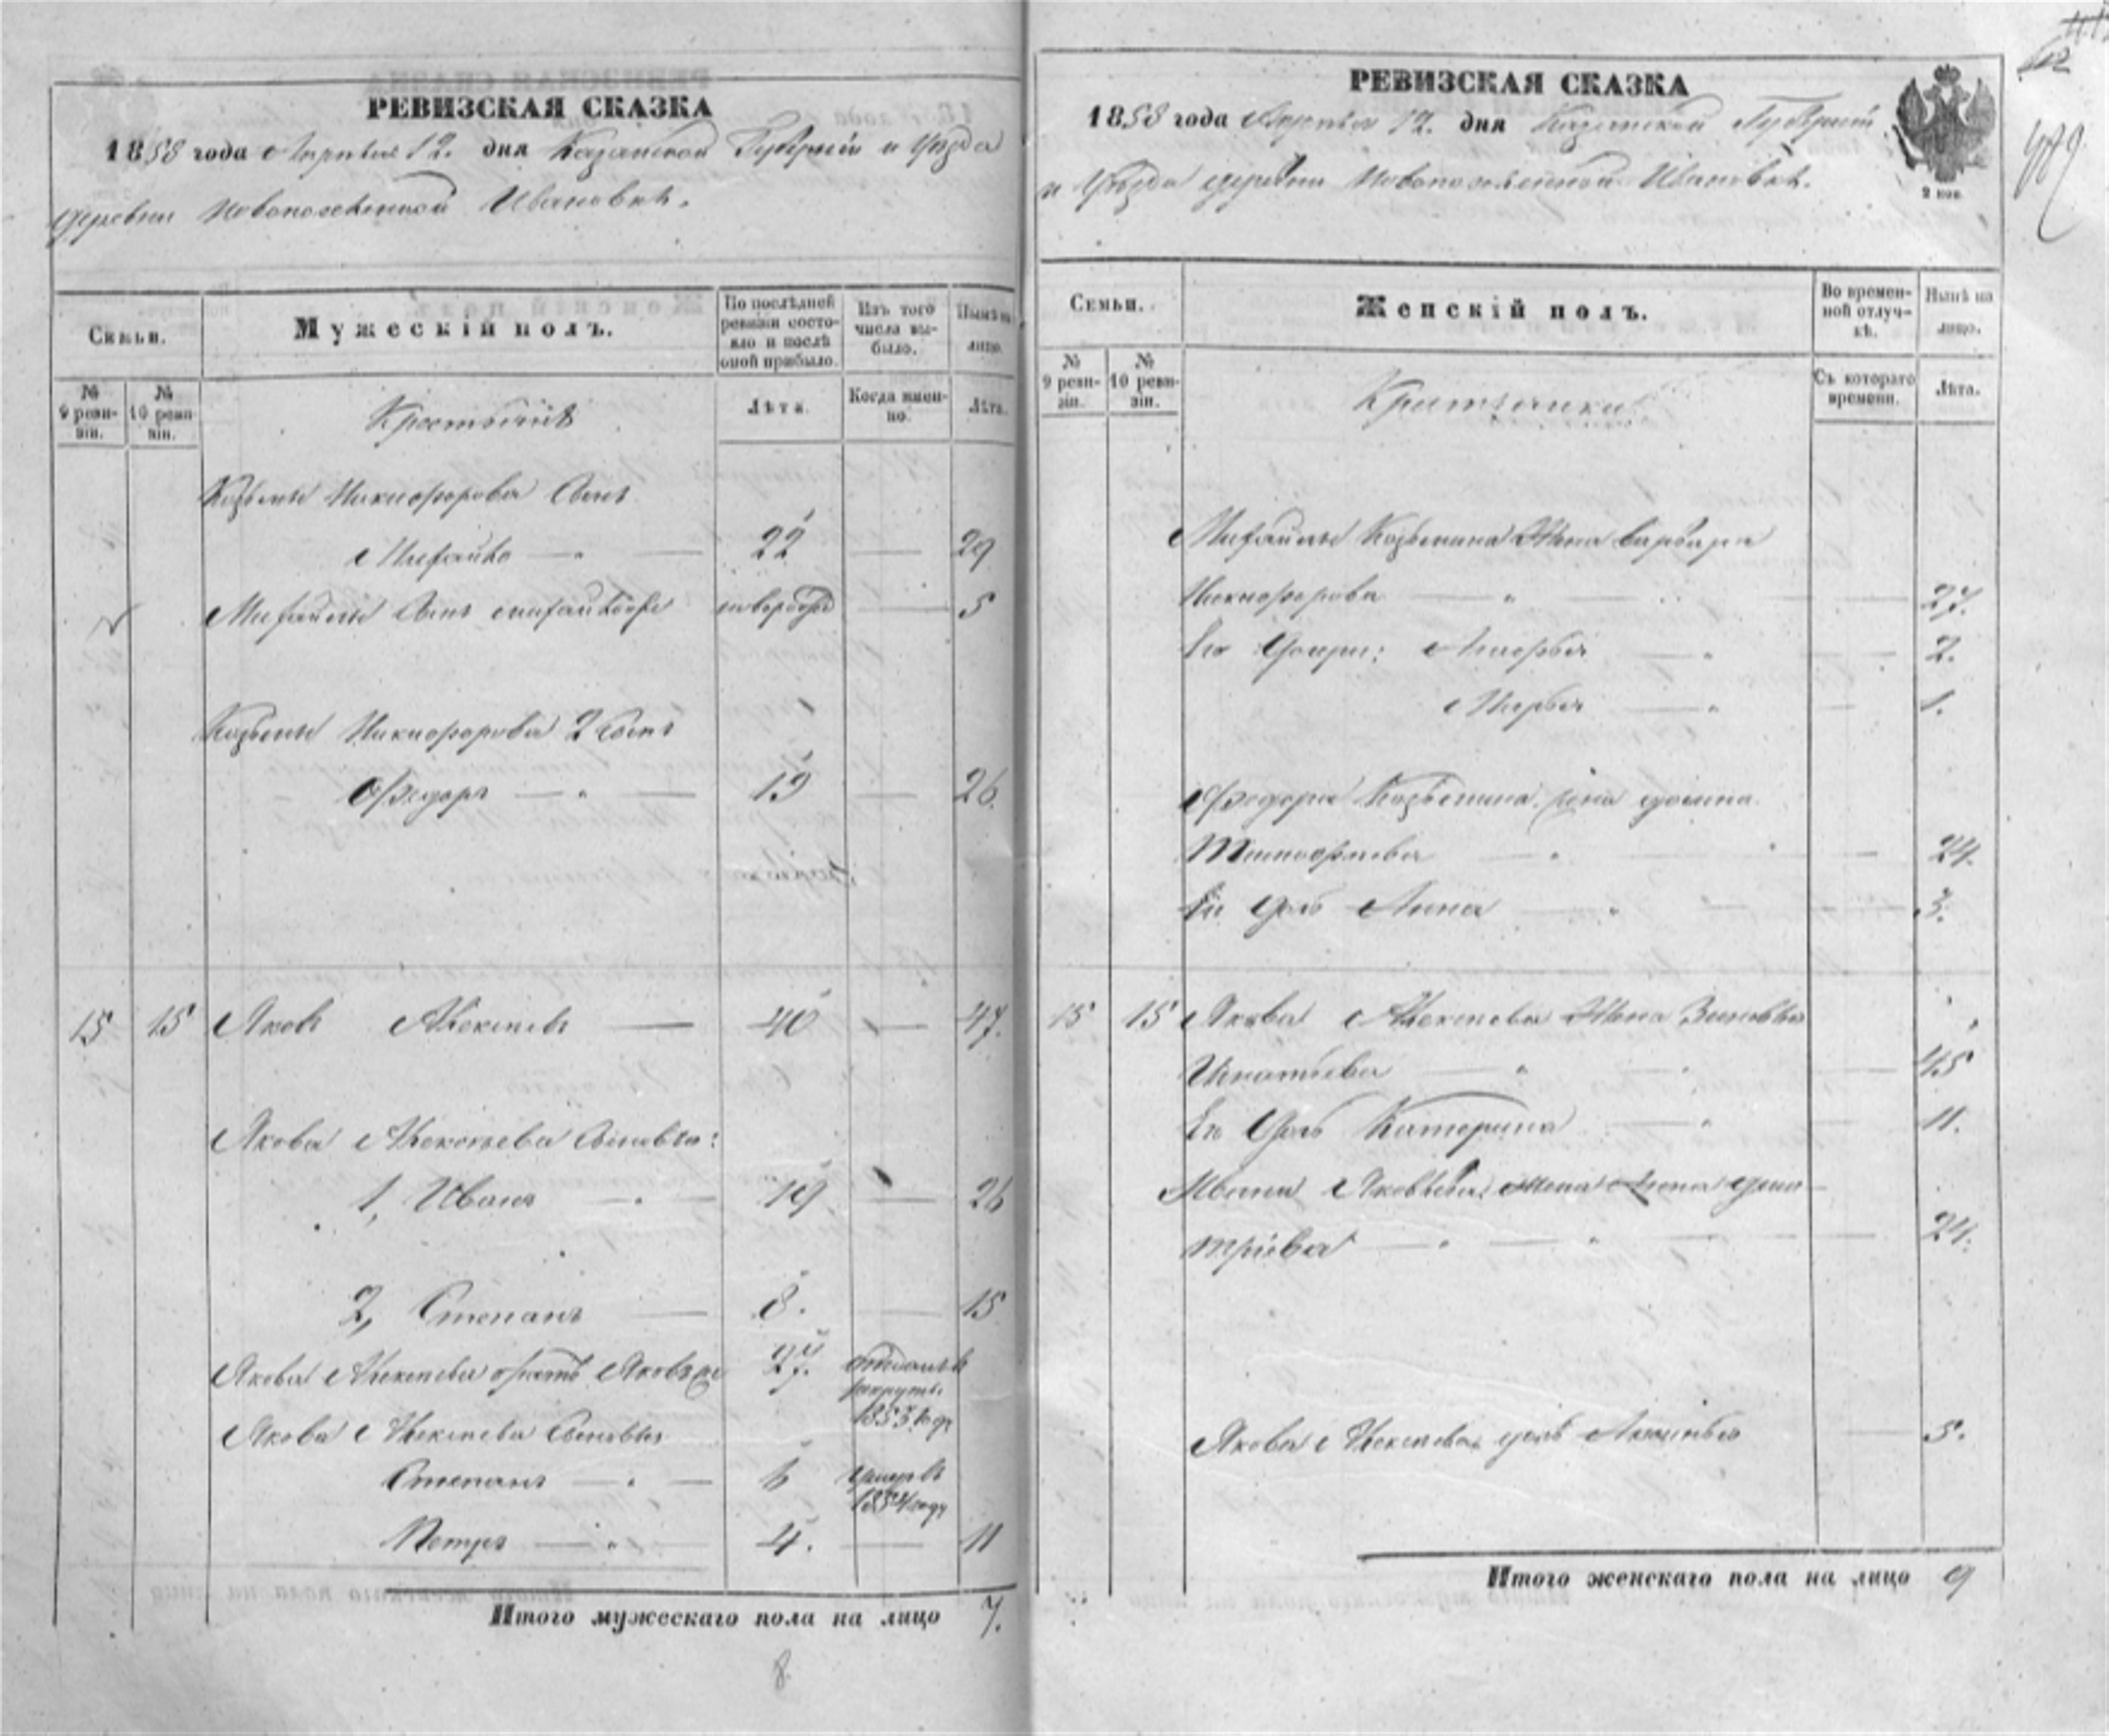 РЕВИЗСКАЯ СКАЗКА
1858 года Апреля 12. дня Казанской Губернии и Уезда
деревни Новопоселенной Ивановки.
Семьи.
Мужескій полъ.
По послѣдней ревизіи состояло и послѣ оной прибыло.
Изъ того числа выбыло.
Нынѣ на лицо.
№ 9 ревизіи.
№ 10 ревизіи.
Крестьяне
Лѣта.
Когда именно.
Лѣта.
Козьмы Никифорова Сынъ
Михайло — 22 — 29
Михайлы Сынъ новорожд — 5
Козьмы Никифорова 2 Сынъ
Федоръ — 19 — 26.
15 15 Яковъ Алексѣевъ — 40 — 47.
Якова Алексѣева Сыновья:
1, Иванъ — 19 — 26
2, Степанъ — 8. — 15
Якова Алексѣева братъ Яковъ же 27. отданъ въ
рекруты.
1853 году
Якова Алексѣева Сыновья
Степанъ — 6 умеръ въ
1854 году
Петръ — 4. — 11
Итого мужескаго пола на лицо 7.
8.
РЕВИЗСКАЯ СКАЗКА
1858 года Апреля 12. дня Казанской Губерніи
и Уѣзда деревни Новопоселенной Ивановки.
2 коп.
Семьи.
Женскій полъ.
Во временной отлучкѣ.
Нынѣ на лицо.
№ 9 ревизіи.
№ 10 ревизіи.
Крестьянки
Съ котораго времени.
Лѣта.
Михайлы Козьмина Жена Варвара
Никифорова — 27.
Его Дочери: — 2.
Марья — 1.
Федора Козьмина жена
Тимофеева — 24.
Ея Дочь Анна — 3.
15 15 Якова Алексѣева Жена Зиновья
Игнатьева — 45
Ея Дочь Катерина — 11.
Ивана Яковлева Жена Анна Дми
тріева — 24.
Якова Алексѣева дочь — 5.
Итого женскаго пола на лицо 9